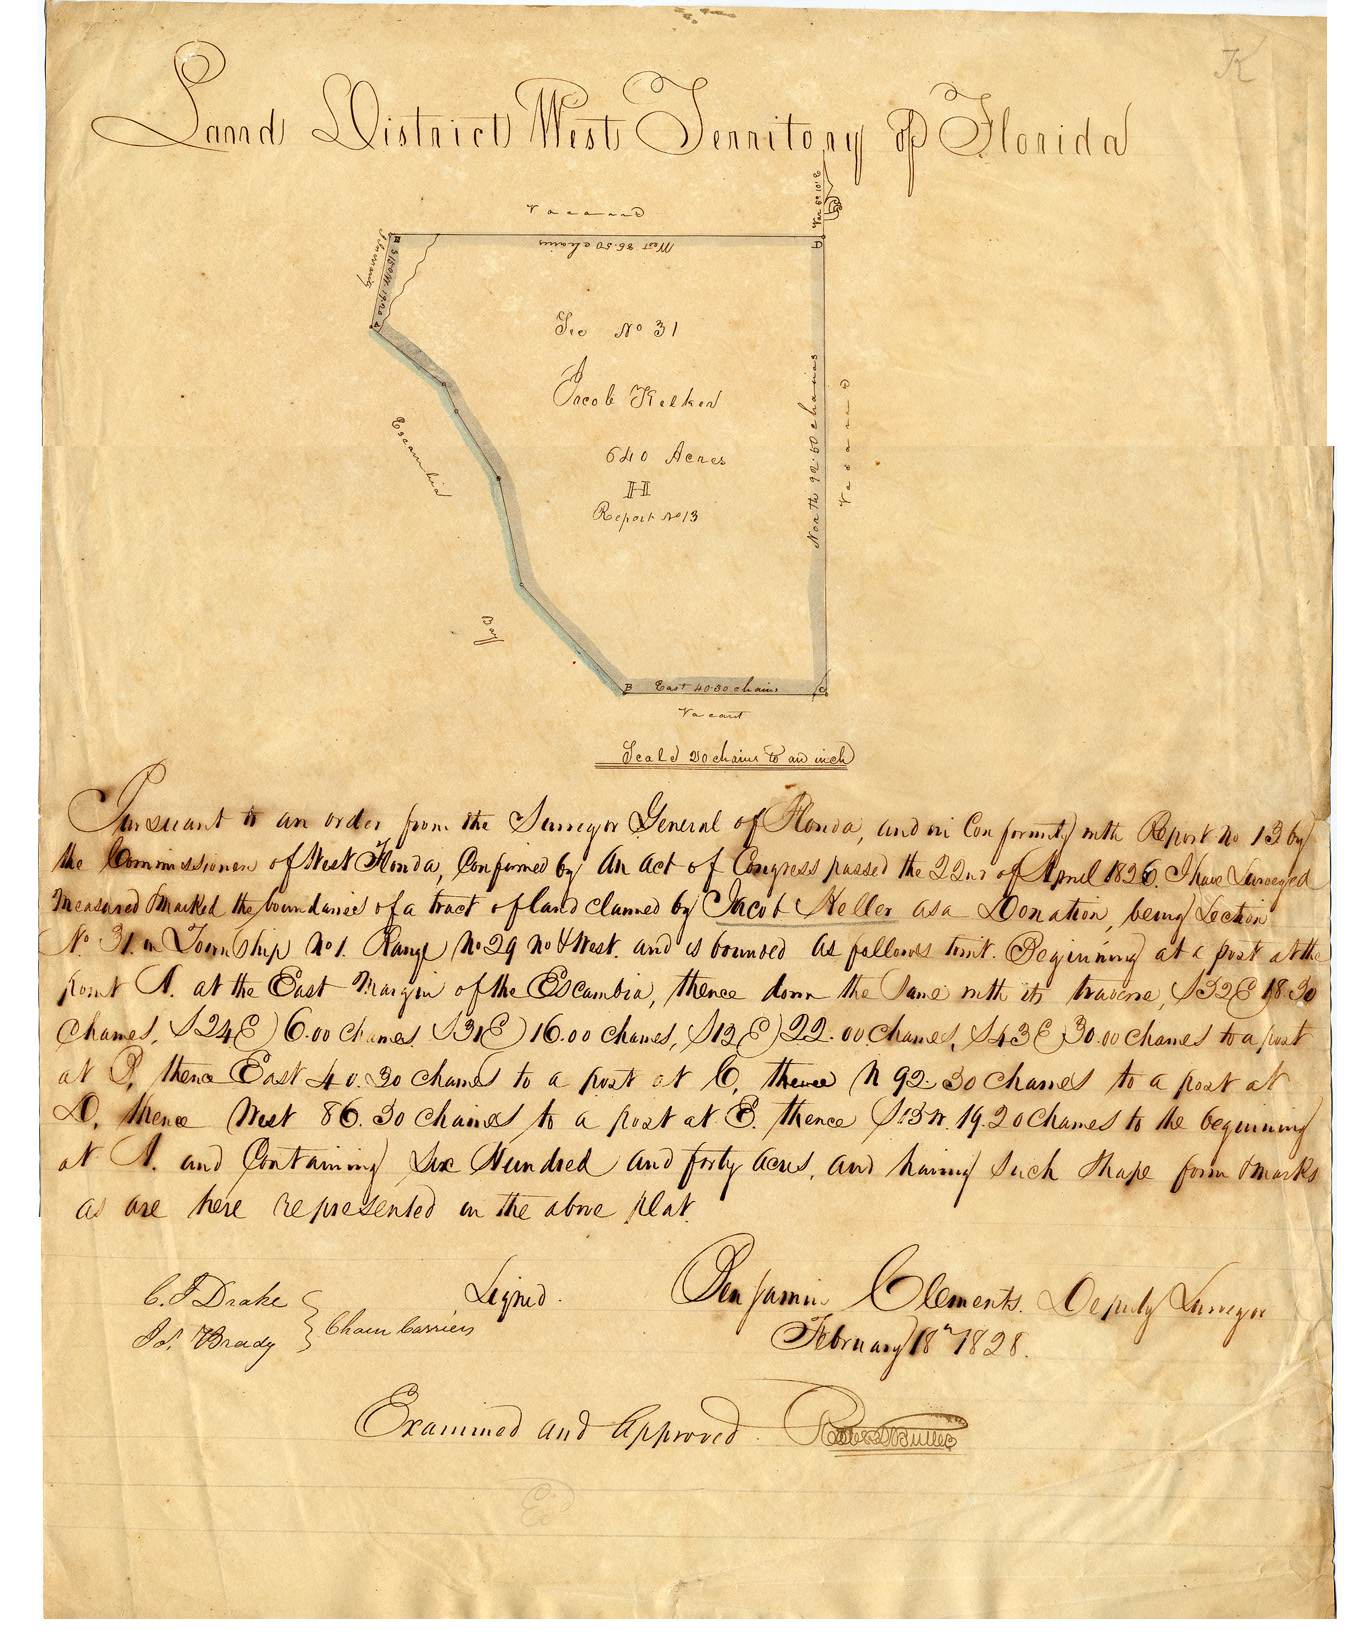 K
Land District West Territory of Florida
Var 6° 10' E
Vacant
West 86.50 chains
D
S 15 W 19.20
A
Sec No 31
Jacob Kelker
640 Acres
H
Report No 13
North 92.50 chains
Vacant
Escambia
Bay
B East 40.30 chains C
Vacant
Scale 20 chains to an inch
Pursuant to an order from the Surveyor General of Florida, and in Conformity with Report No 13 by
the Commissioners of West Florida, Confirmed by An Act of Congress passed the 22nd of April 1826. I have Surveyed
Measured & marked the boundaries of a tract of land claimed by Jacob Keller as a Donation, being Section
No. 31. in Township No 1. Range No 29 No & West. and is bounded as follows to wit. Beginning at a post at the
point A. at the East Margin of the Escambia, thence down the Same with its traverse, S 52 E 18.30
chaines, S 24 E 6.00 chaines S 31 E 16.00 chaines, S 12 E 22.00 chaines, S 43 E 30.00 chaines to a post
at B, thence East 40.30 chaines to a post at C, thence N 92.50 chaines to a post at
D, thence West 86.50 chaines to a post at E. thence S 15 W. 19.20 chaines to the beginning
at A. and Containing Six Hundred and forty acres, and having Such Shape form & marks
as are here represented in the above plat.
C. J Drake
Jo. Brady
Chain Carriers
Signed.
Benjamin Clements. Deputy Surveyor
February 18th 1828.
Examined and Approved. Robert Butler